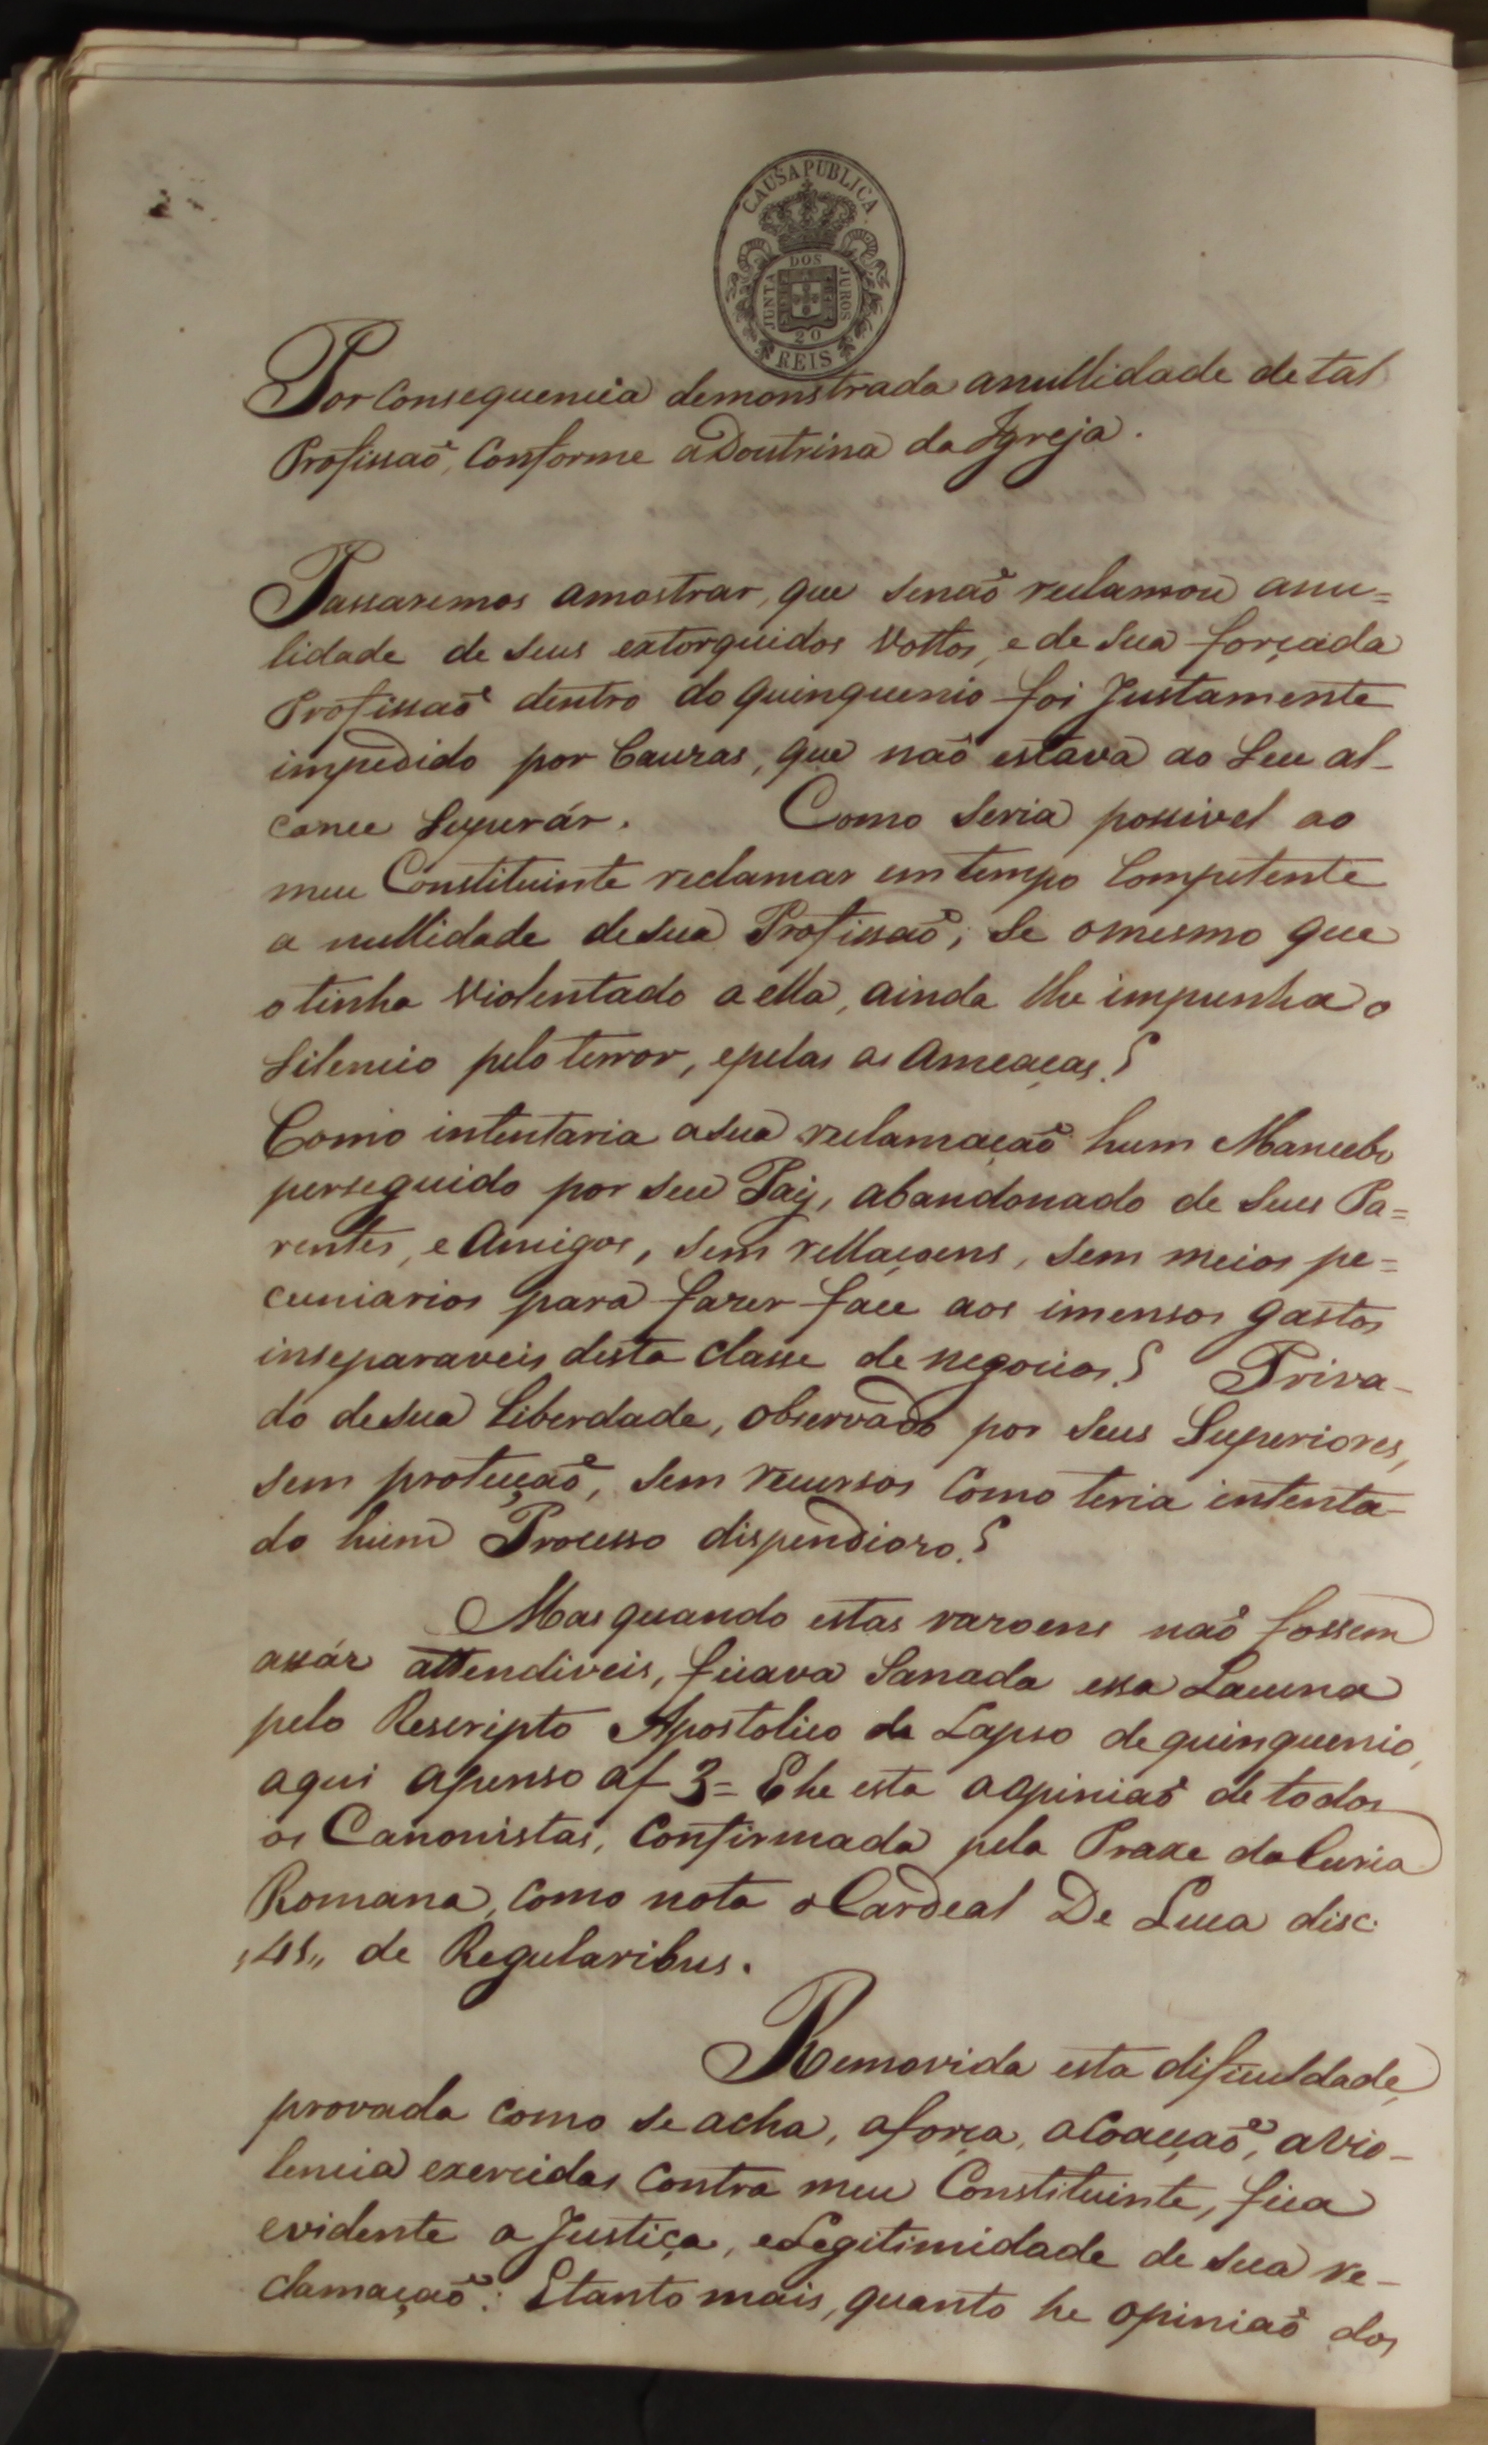 CAUSA PUBLICA
JUNTA DOS JUROS
20
REIS
Por Consequencia demonstrada anullidade de tal
Profissaõ, Conforme a Doutrina da Igreja.
Passaremos amostrar, que senaõ reclamou anu=
lidade de seus extorquidos Vottos, e de sua forçada
Profissaõ dentro do quinquenio foi Justamente
impedido por Cauzas, que naõ estava ao Seu al-
cance Superár. Como Seria possivel ao
meu Constituinte reclamar em tempo Competente
a nullidade de sua Profissaõ; Se omesmo que
o tinha Violentado a ella, ainda lhe impunha o
Silencio pelo terror, epelas as Ameaças?
Como intentaria a sua reclamaçaõ hum Mancebo
perseguido por seu Paÿ, abandonado de Seus Pa=
rentes, e Amigos, Sem rellaçoens, Sem meios pe=
cuniarios para fazer face aos imensos gastos
inseparaveis desta Classe de negocios? Priva-
do de sua Liberdade, observado por Seus Superiores,
sem protecçaõ, Sem recursos Como teria intenta-
do hum Processo dispendiozo?
Mas quando estas razoens naõ fossem
assáz attendiveis, ficava Sanada essa Lacuna
pelo Rescripto Apostolico de Lapso de quinquenio,
aqui apenso af 3= E he esta a opiniaõ de todos
os Canonistas, Confirmada pela Praxe da Curia
Romana, Como nota o Cardeal De Luca disc.
"41" de Regularibus.
Removida esta dificuldade,
provada Como se acha, aforça, a Coacçaõ, aVio-
lencia exercidas Contra meu Constituinte, fica
evidente a Justiça, eLegitimidade de Sua re-
clamaçaõ: E tanto mais, quanto he opiniaõ dos